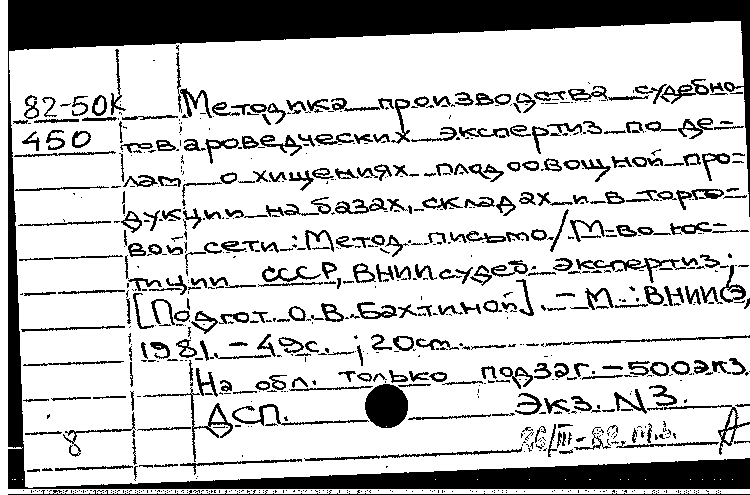 82-50К Методика производства судебно-
450 товароведческих экспертиз по де-
лам о хищениях плодоовощной про-
дукции на базах, складах и в торго-
вой сети : Метод. письмо / М-во юс-
тиции СССР, ВНИИ судеб. экспертиз ;
[Подгот. О. В. Бахтиной]. - М. : ВНИИСЭ,
1981. - 49с. ; 20см.
На обл. только подзаг. - 500экз.
ДСП. Экз. N3.
8 26/III-82. М.